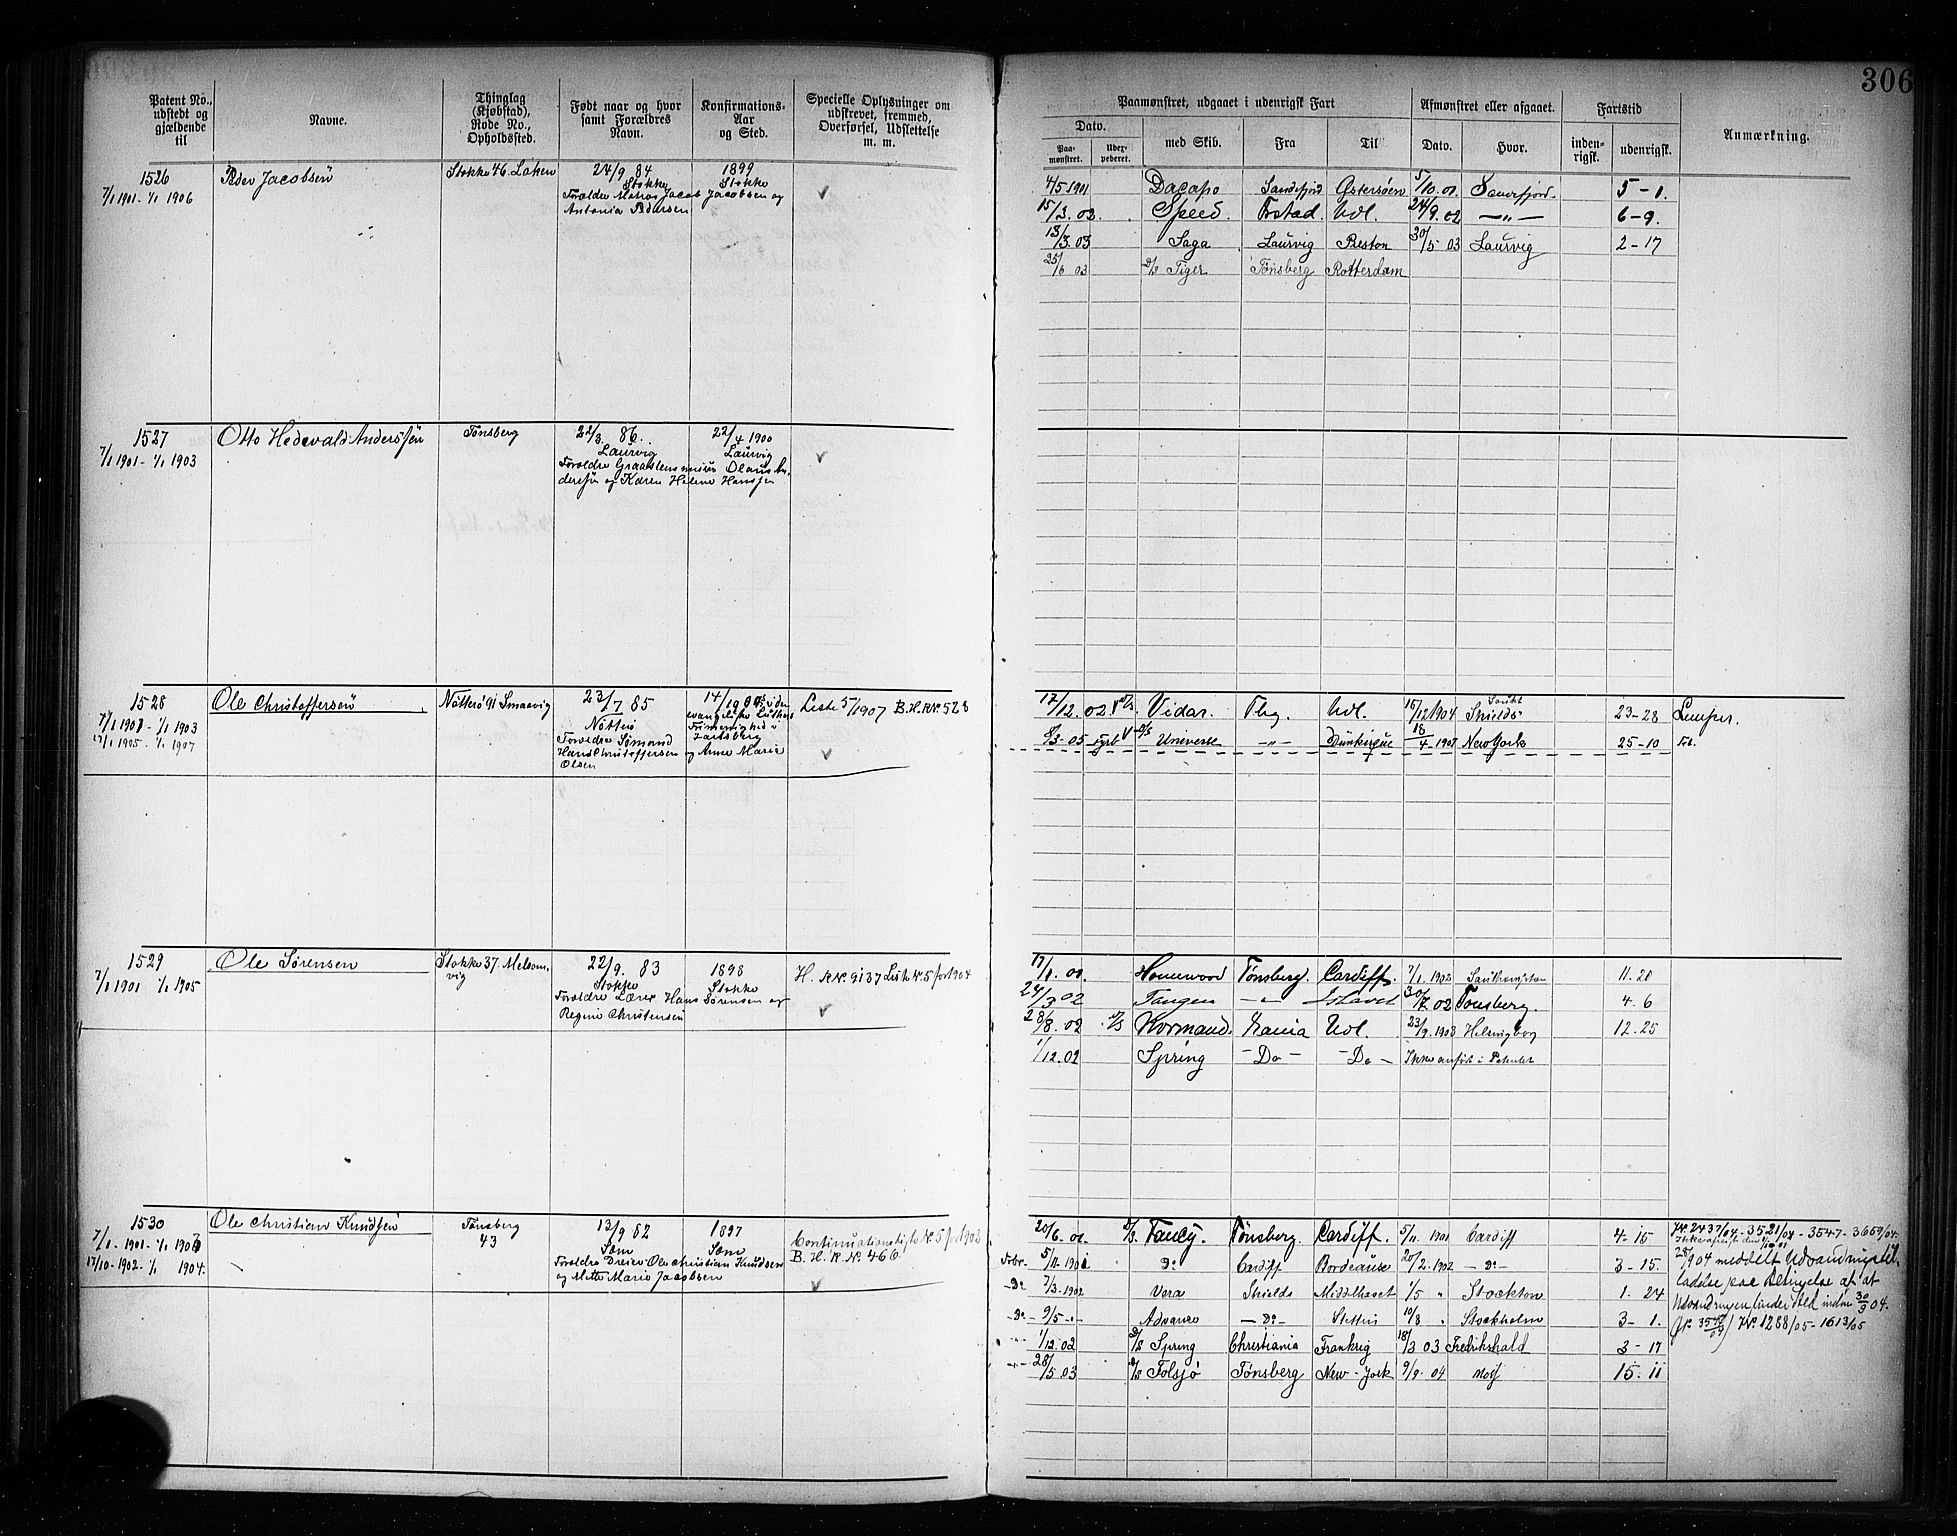 306
Patent No., udstedt og gjældende til
Navne.
Thinglag (Kjøbstad), Rode No., Opholdssted.
Født naar og hvor samt Forældres Navn.
Konfirmations-Aar og Sted.
Specielle Oplysninger om udskrevet, fremmed, Overførsel, Udslettelse m. m.
Paamønstret, udgaaet i udenrigsk Fart
Afmønstret eller afgaaet.
Fartstid
Anmærkning.
Dato.
Paa-mønstret.
Udex-pederet.
med Skib.
Fra
Til
Dato.
Hvor.
inden-rigsk.
udenrigsk.
1526
7/1 1901 - 1/1 1906
Peder Jacobsen
Stokke 46.
24/9 84
Stokke
1899
Stokke
Forældre Matros Jacob Jacobsen og
Antonia Pedersen
4/5 1901 Dacapo Sandefjord Østersøen 5/10 01. Sandefjord. 5-1.
15/3. 02. Speed. Frstad. Udl. 24/9. 02 —„— 6-9.
13/3 03 Saga Laurvig Preston 30/5 03 Laurvig 2-17
25/6 03 D/S Tiger Tønsberg Rotterdam
1527
7/1 1901 - 1/1 1903
Otto Hedevald Anderssen
Tønsberg
22/3. 86.
Laurvig
22/4 1900
Laurvig
Olaus An-
dersen og Karen Helene Hanssen
1528
7/1 1901 - 1/1 1903
17/1 1905 - 1/1 1907
Ole Christoffersen
Nøtterø 91 Smaavig
23/7 85
Nøtterø
Forældre Sømand
Hans Christoffersen
Olsen
evangelisk Luthers
Frimenighed i
Jarlsberg
og Anne Marie
Liste 5/1907 B.H.R.Nº 528
17/12. 02 D/S Vidar. Tbg. Udl. 15/12 1904 South Shields 23-28 Lemper.
8/3-05 D/S Universe —„— Dünkirque 18/4-1907 New York 25-10
1529
7/1 1901 1/1 1905
Ole Sørensen
Stokke 37. Melsom-
vig
22/9. 83
Stokke
1898
Stokke
Forældre Lærer Hans Sørensen og
Regine Christensen
H. R.Nº. 9137 Liste Nº. 5 for 1904
Homewood Tønsberg. Cardiff. 7/1. 1902 Southampton 11.20
24/3 02 Tangen —„— 30/7 02 Tønsberg. 4.6
28/8. 02 D/S Kormand. Udl. 23/9. 1903 Helsingborg 12.25
1/12.02 Spring —Do— —Do— Ikke anført i Patentet
1530
7/1. 1901 - 1/1 1903
17/10 - 1902 - 1/1 1904.
Ole Christian Knudsen
Tønsberg
43
13/9 82
Sem
1897
Sem
Forældre Dreier Ole Christian Knudsen
og Mette Marie Jacobsen
Continuationsliste Nº. 5 for 1903
B. H. R. Nº. 466
20/6. 01 D/S Fancy. Tønsberg. Cardiff. 5/11. 1901 Cardiff 4-15
5/11. 1901 Dº Cardiff Bordeaux 20/2. 1902 —Dº— 3-15.
—Dº 7/3. 1902 Vera Shields Middelhavet 1/5 „ Stockton 1. 24
—Dº— 9/5 -„- Advance —Dº— Stettin 10/8 „ Stockholm 3-1.
—„— 1/12.02 D/S Spring Christiania Frankrig 18/3 03 Fredrikshald 3-17
—„— 28/5 03 D/S Tolsjø Tønsberg New-York 9/9. 04 Moss 15. 11
Jr. 2437/04 - 3521/04 - 3547 - 3659/04.
meddelt Udvandringstil-
ladelse paa Betingelse af at
Udvandringen finder Sted inden 30/9 04.
Jr. 1288/05 - 1613/05